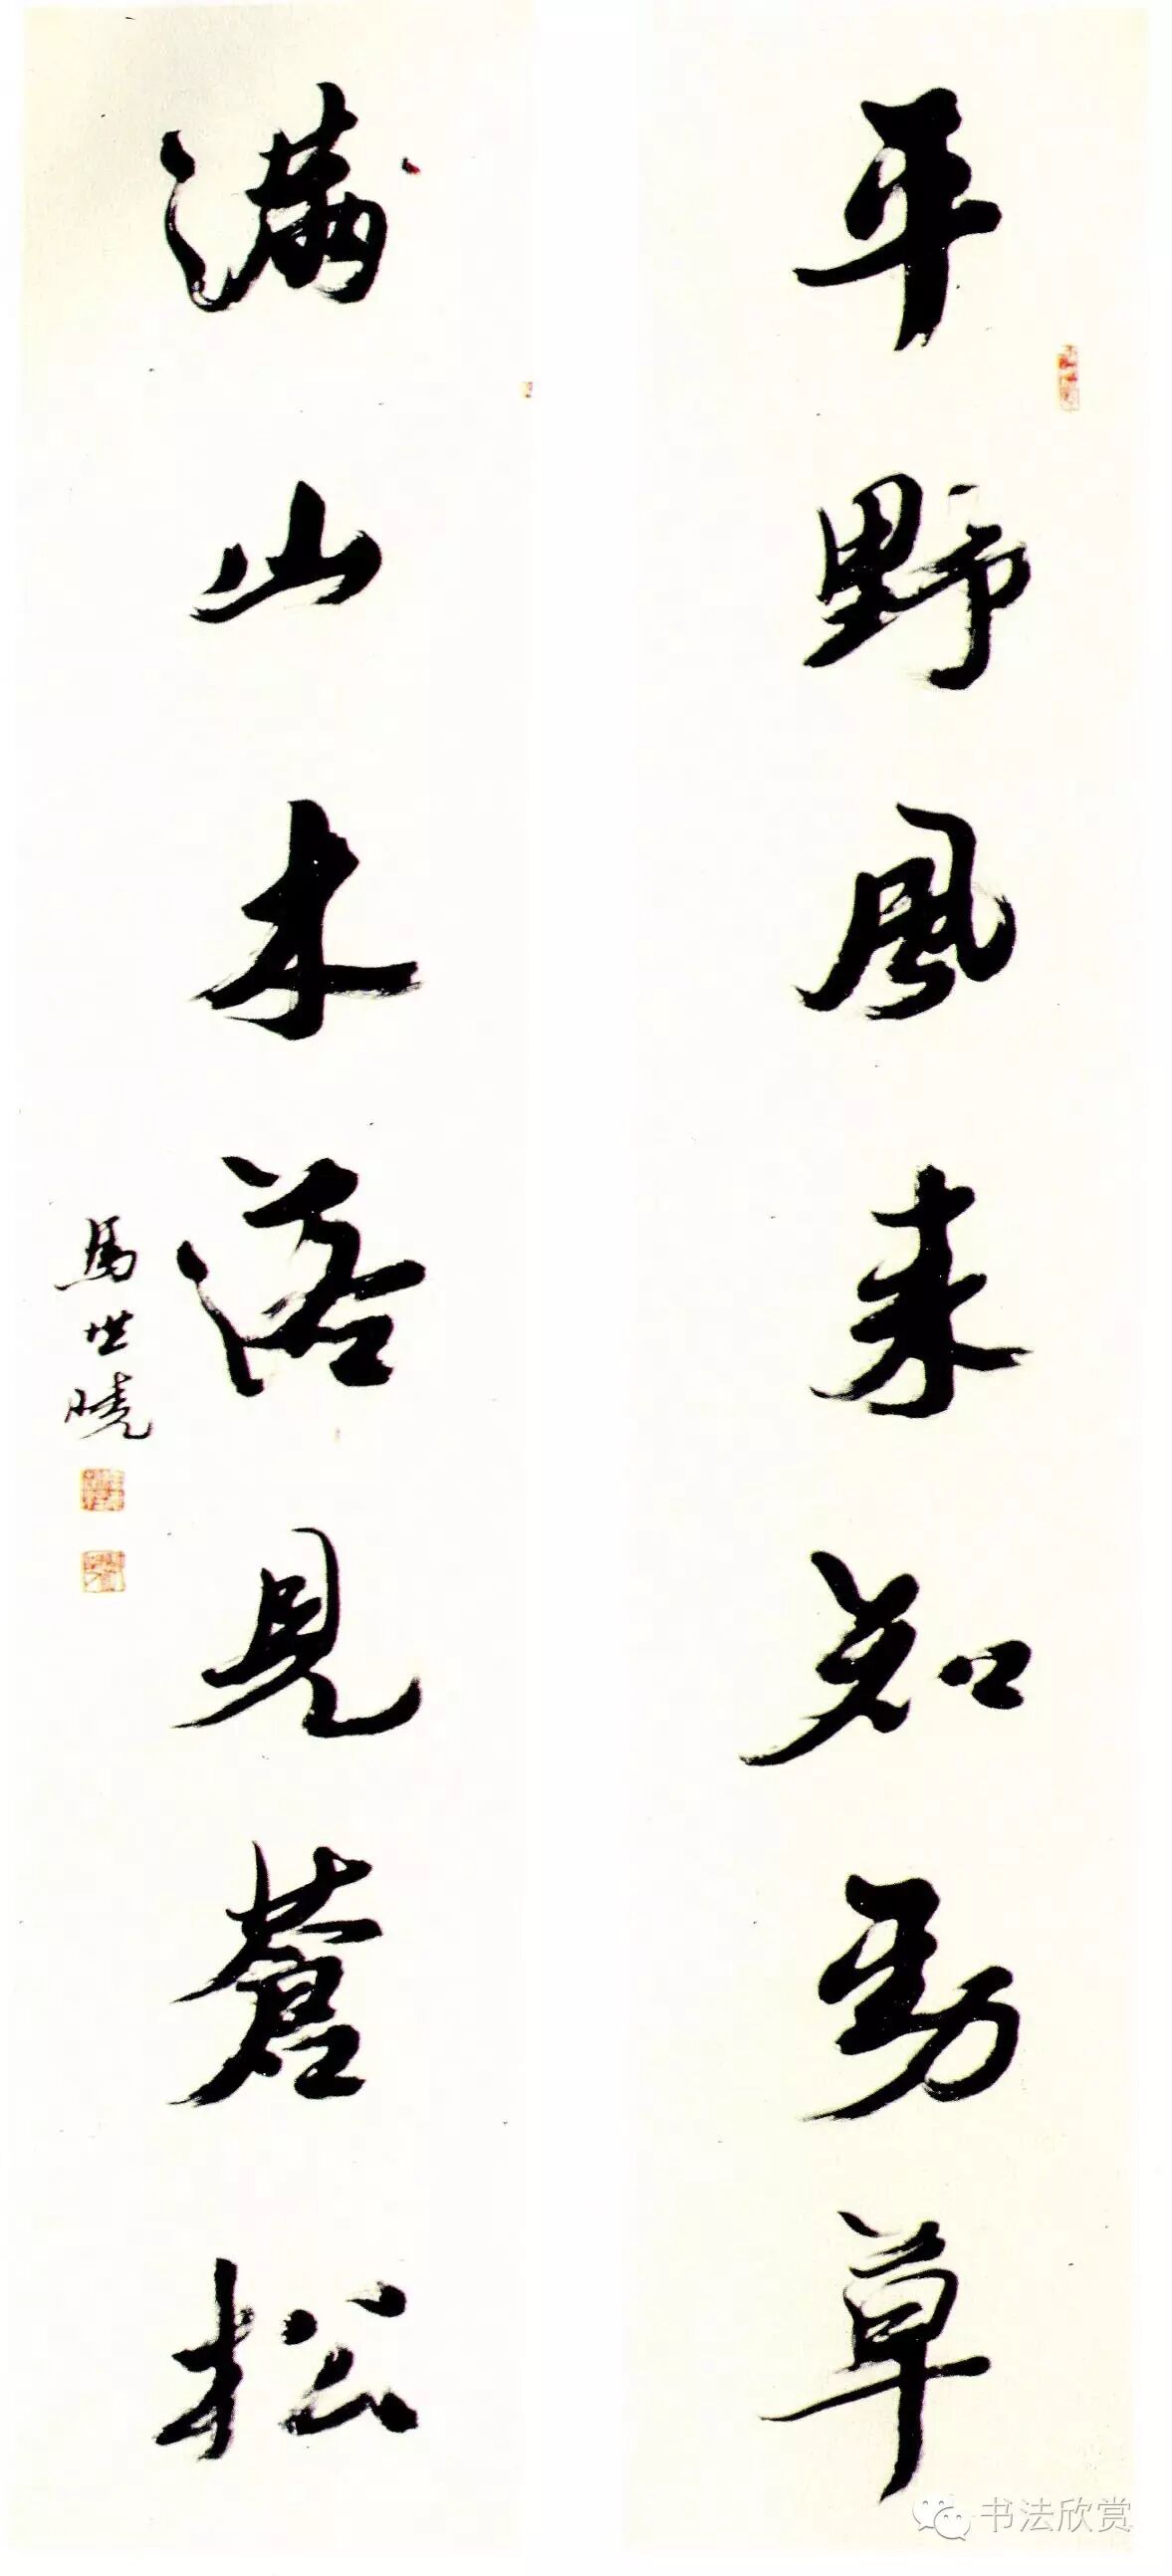 平野風来知勁草
滿山木落見蒼松
馬世曉
书法欣赏